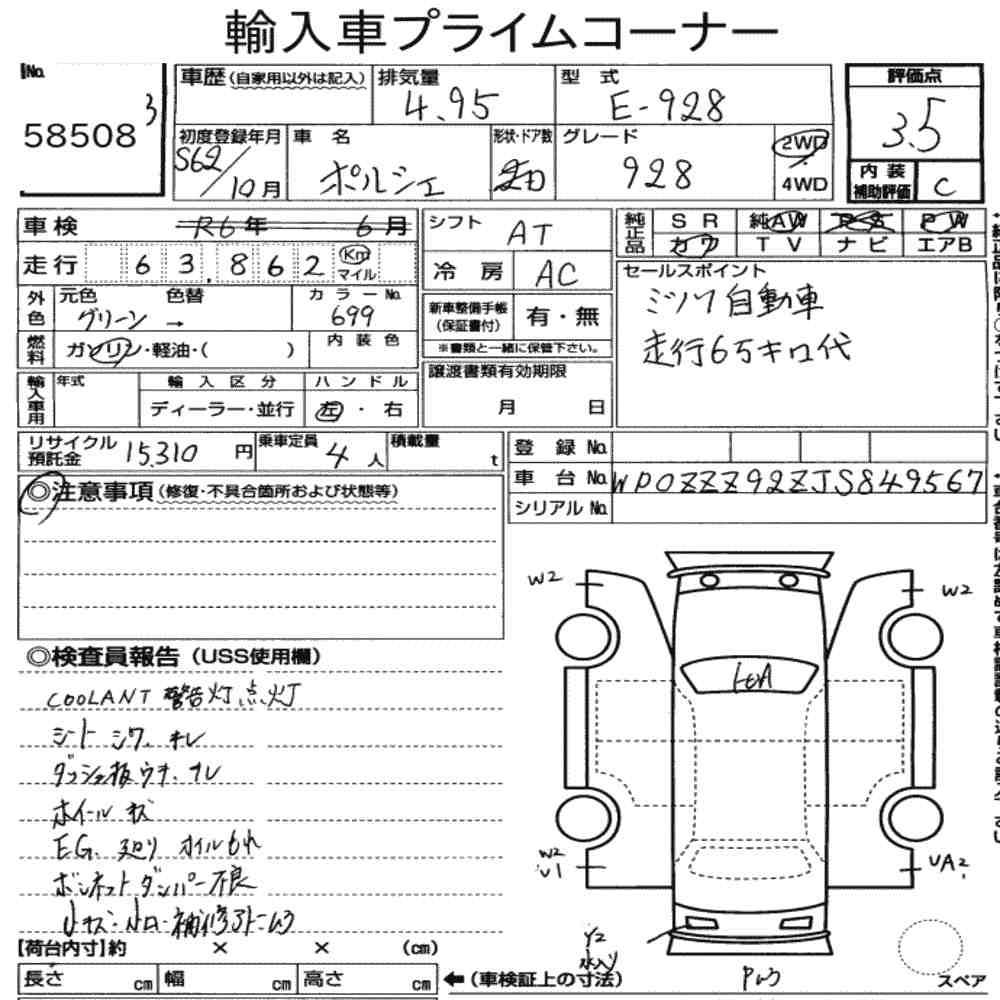 輸入車プライムコーナー
No.
58508 3
車歴（自家用以外は記入）
排気量
4.95
型 式
E-928
評価点
3.5
初度登録年月
S62/10月
車 名
ポルシェ
形状・ドア数
グレード
928
2WD
・
4WD
内装
補助評価
C
車検 R6年 6月
シフト AT
純正品
SR 純AW PS PW
カワ TV ナビ エアB
走行 63,862 Km
マイル
冷房 AC
セールスポイント
ミツワ自動車
走行6万キロ代
外色
元色 色替 カラーNo.
グリーン → 699
新車整備手帳
（保証書付）
有・無
※書類と一緒に保管下さい。
燃料
ガソリン・軽油・（ ）
内装色
譲渡書類有効期限
月 日
輸入車用
年式
輸入区分
ディーラー・並行
ハンドル
左・右
リサイクル
預託金
15,310 円
乗車定員
4人
積載量
t
登録No.
車台No. WP0ZZZ92ZJS849567
シリアルNo.
◎注意事項（修復・不具合箇所および状態等）
◎検査員報告（USS使用欄）
COOLANT 警告灯点灯
シート シワ、キレ
ダッシュ板ウキ、キレ
ホイール キズ
E.G. 廻り オイルもれ
ボンネットダンパー不良
W2
W2
W2
U1
UA2
Y2
水入り
【荷台内寸】約 × × （cm）
長さ cm 幅 cm 高さ cm
←（車検証上の寸法）
スペア